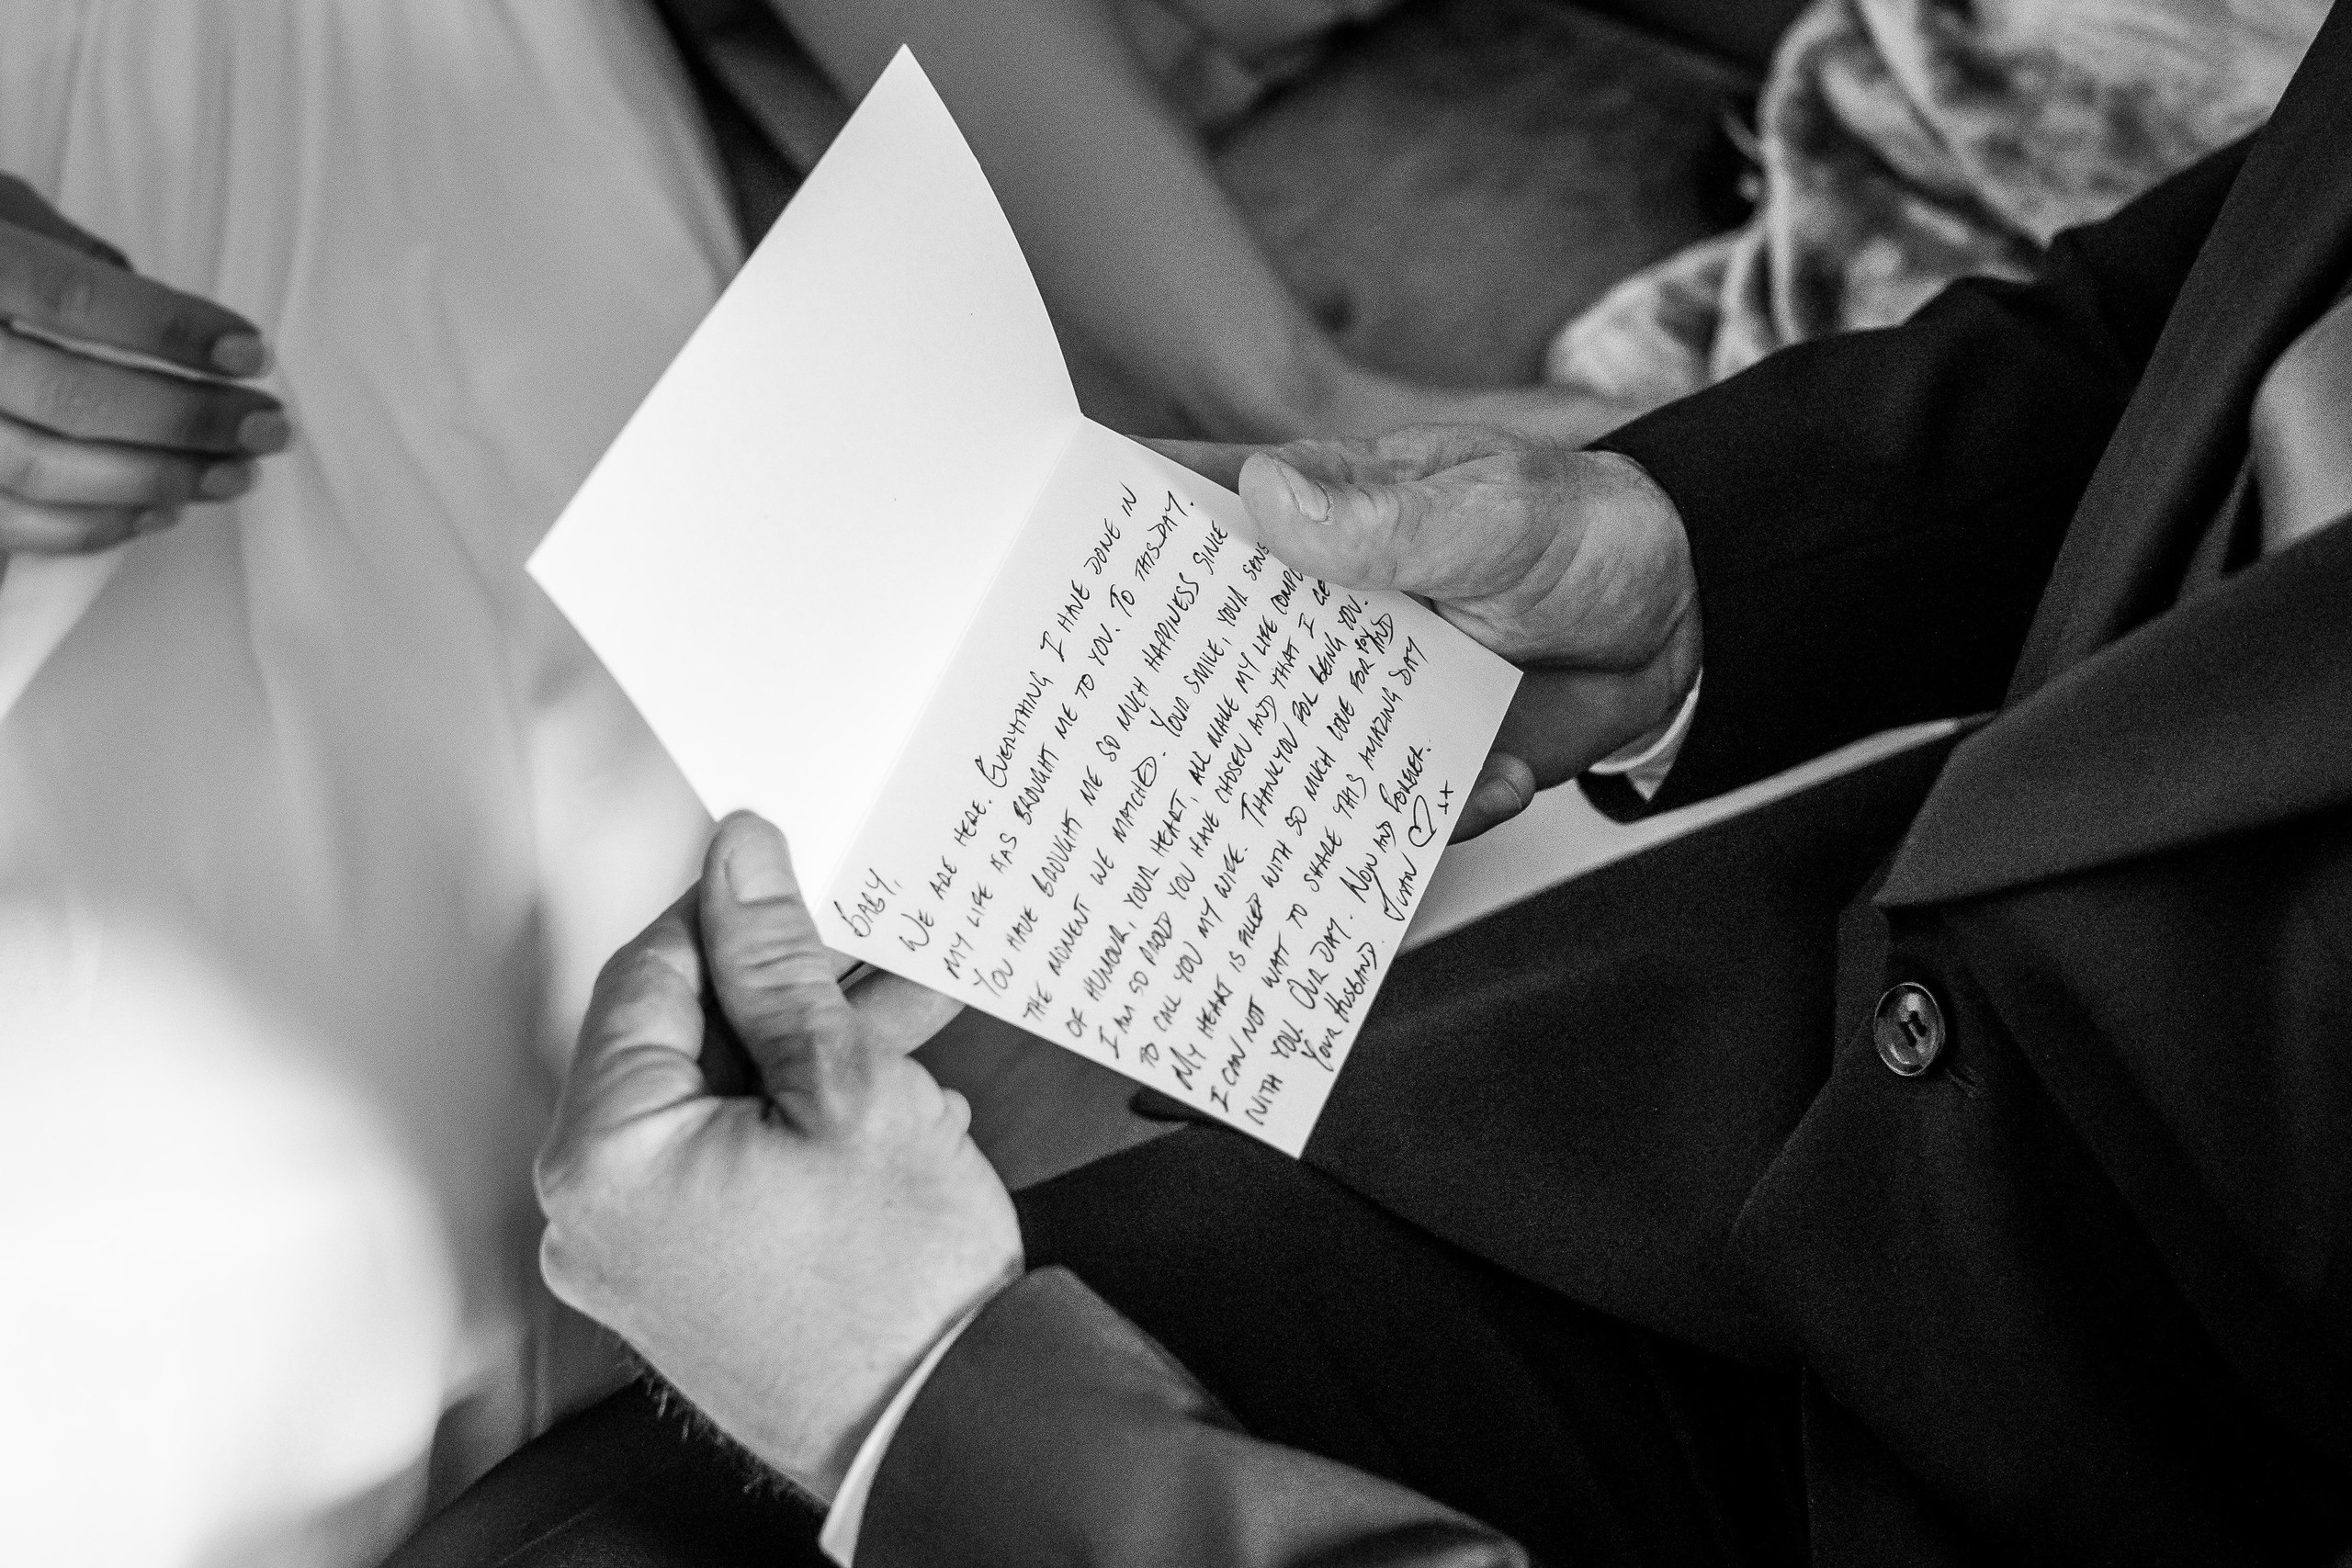 BABY,
WE ARE HERE. EVERYTHING I HAVE DONE IN
MY LIFE HAS BROUGHT ME TO YOU. TO THIS DAY.
YOU HAVE BROUGHT ME SO MUCH HAPPINESS SINCE
THE MOMENT WE MATCHED. YOUR SMILE, YOUR SENS
OF HUMOUR, YOUR HEART, ALL MAKE MY LIFE COMPL
I AM SO PROUD YOU HAVE CHOSEN AND THAT I GE
TO CALL YOU MY WIFE. THANKYOU FOR BEING YOU.
MY HEART IS FILLED WITH SO MUCH LOVE FOR YOU AND
I CAN NOT WAIT TO SHARE THIS AMAZING DAY
WITH YOU. OUR DAY. NOW AND FOREVER.
YOUR HUSBAND. JUSTIN ♡ xx